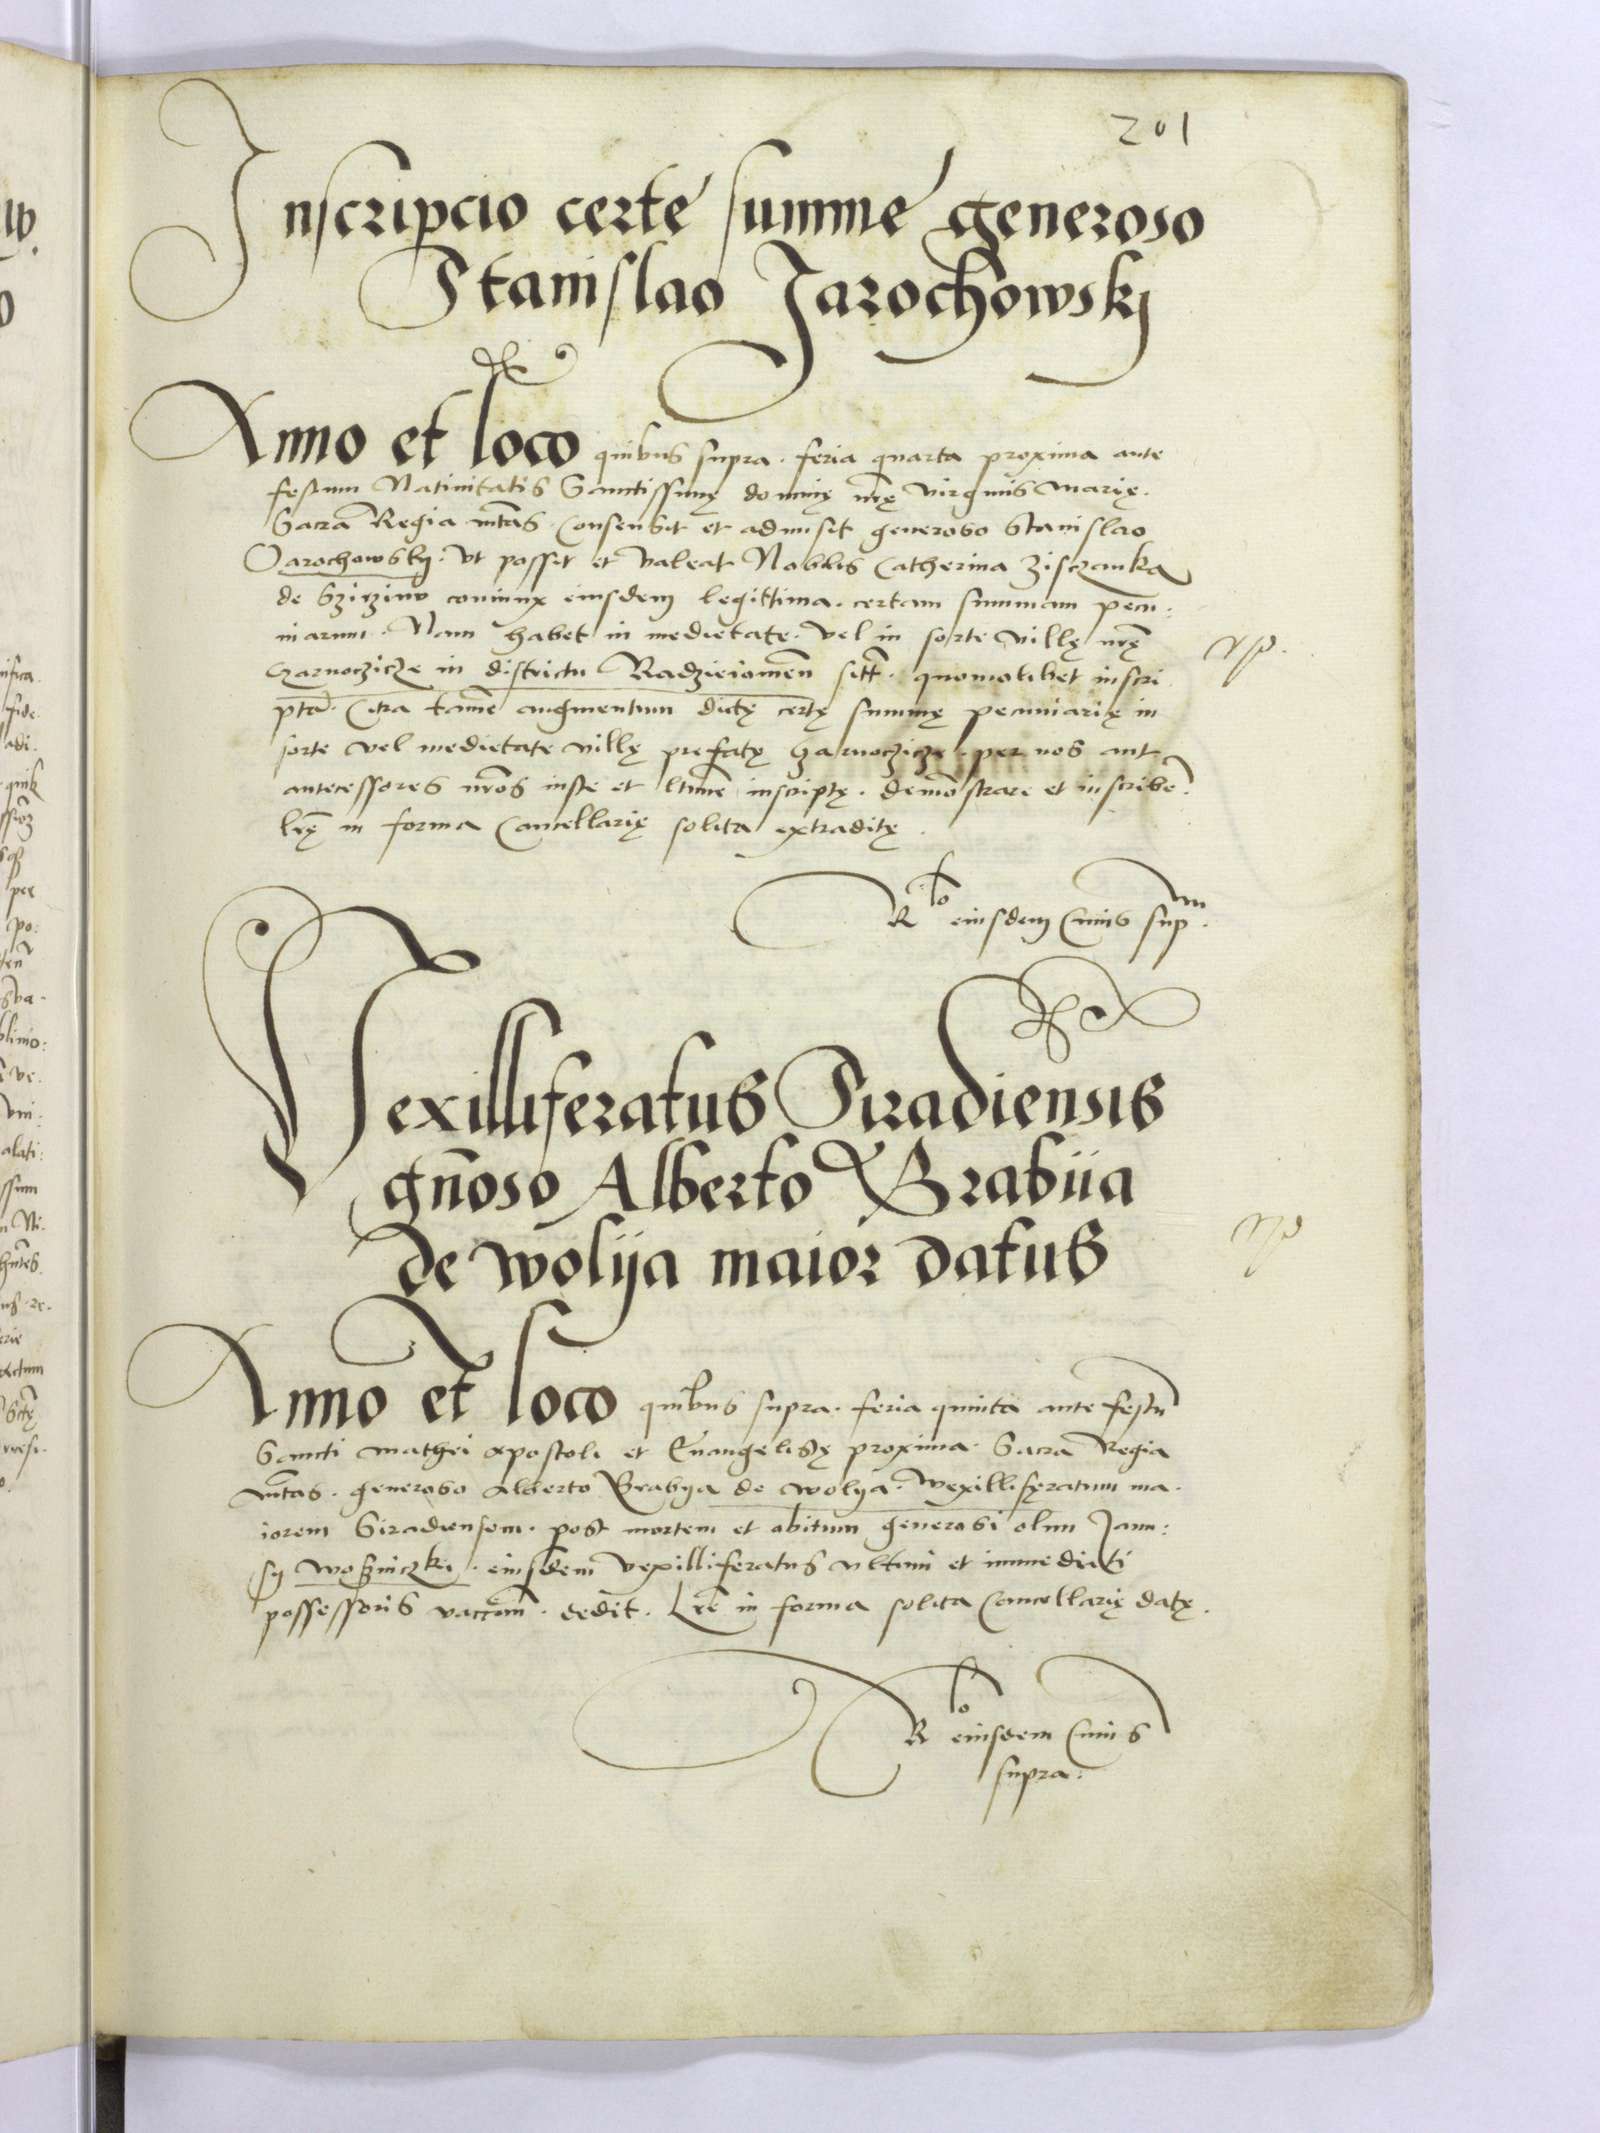 201
Inscripcio certe summe generoso
Stanislao Jarochowskj
Anno et loco quibus supra. feria quarta proxima ante
festum Natiuitatis Sanctissimę dominę nr̄ę virginis Marię.
Sacra Regia mt̄as Consensit et admisit generoso Stanislao
Jarochowsky. Vt possit et Valeat Nobilis Catherina
de coniunx eiusdem legittima. certam summam pecu:
niarum. Nam habet in medietate. vel in sorte villę nr̄ę
in districtu sitt̄. quomolibet inscri
ptā. Citra tamē augmentum dictę certę summę pecuniarię in
sorte vel medietate villę prefatę per nos aut
antecessores nr̄os iuste et inscriptę. demōstrare et inscribe
lr̄ę in forma Cancellarię solita extraditę.
Rlo eiusdem Cuius sup
Vexilliferatus Siradiensis
gn̄oso Alberto Brabiia
de wolija maior datus
Anno et loco quibus supra. feria quinta ante festū
Sancti mathei apostoli et Euangelistę proxima. Sacra Regia
mt̄as. generoso Alberto Brabya de wolya. Wexilliferatum ma.
iorem Siradiensem. post mortem et obitum generosi olim Jann:
sy eiusdem vexilliferatus vltimi et immediati
possessoris dedit. Lr̄ę in forma solita Cancellarię datę.
Rlo eiusdem Cuius
supra.